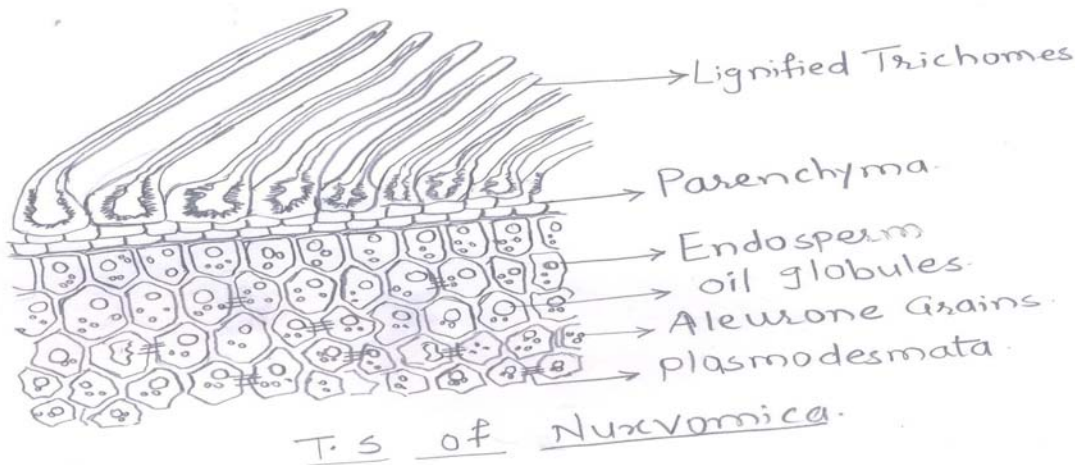 Lignified Trichomes
Parenchyma.
Endosperm
oil globules.
Aleurone Grains.
plasmodesmata
T.S of Nuxvomica.